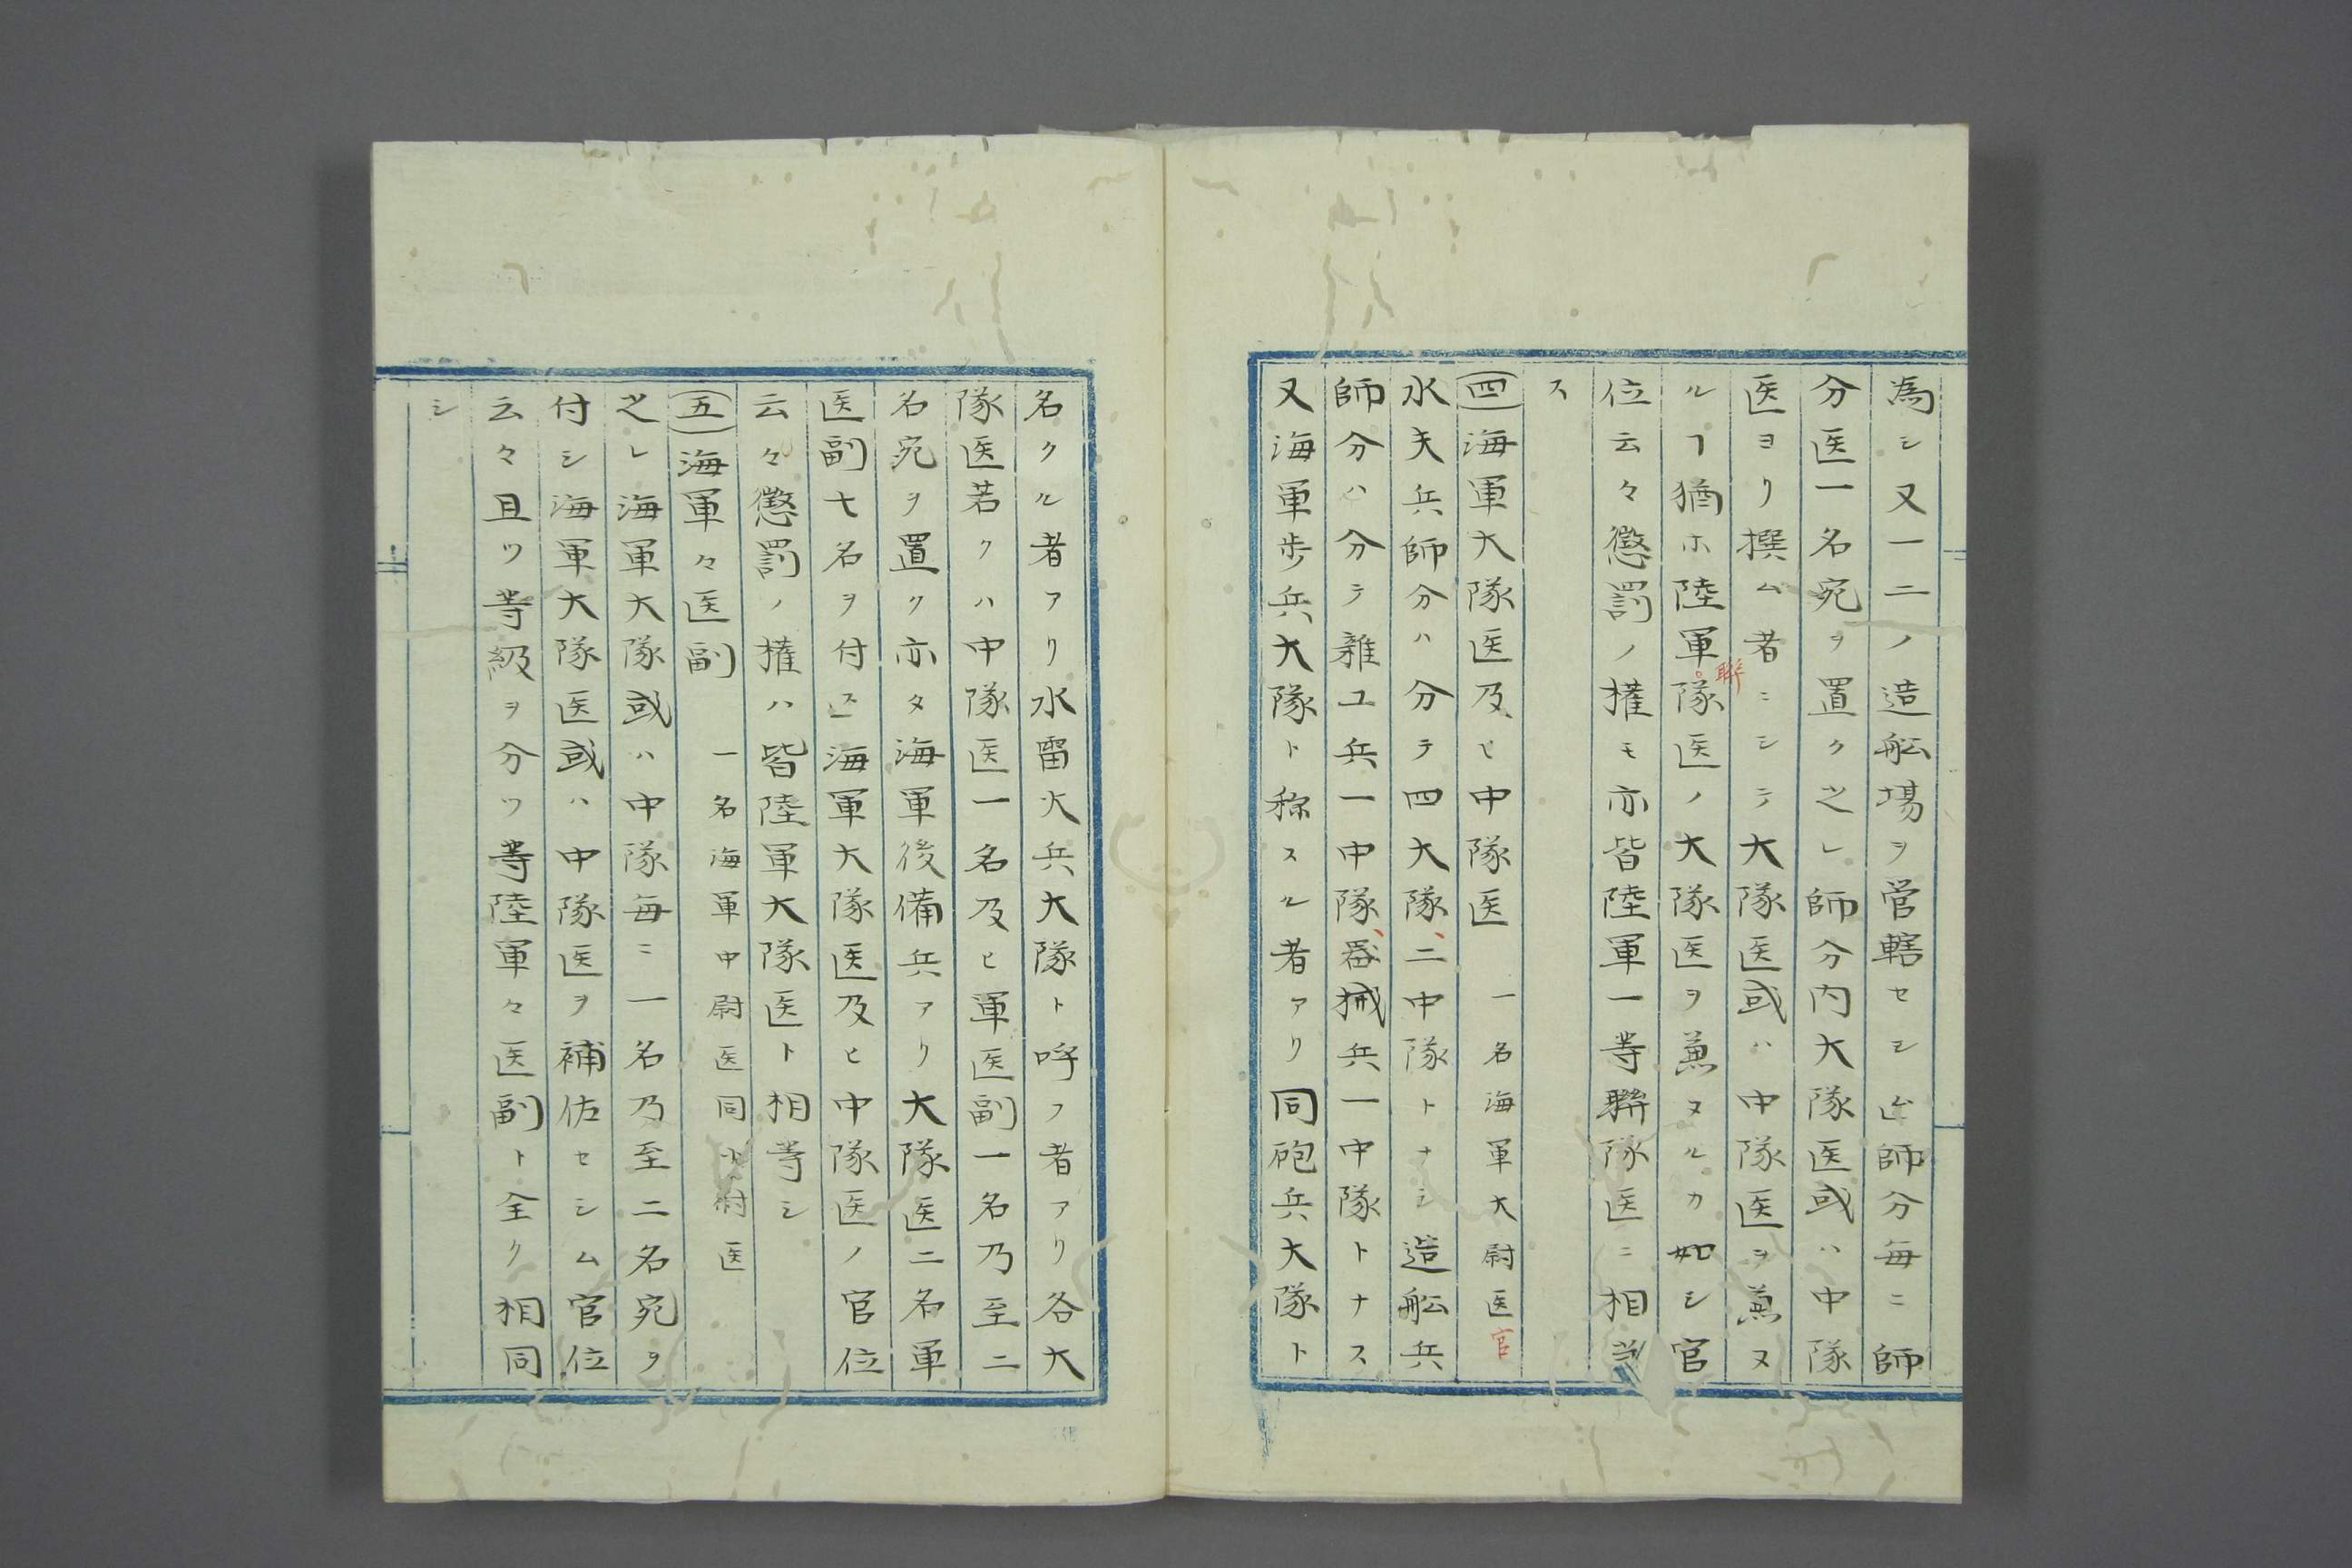 為シ又一二ノ造舩場ヲ管轄セシム師分毎ニ師
分医一名宛ヲ置ク之レ師分内大隊医或ハ中隊
医ヨリ撰ム者ニシテ大隊医或ハ中隊医ヲ兼ヌ
ルヿ猶ホ陸軍聯隊医ノ大隊医ヲ兼ヌルカ如シ官
位云々懲罰ノ権モ亦皆陸軍一等聯隊医ニ相当
ス
(四)海軍大隊医及ヒ中隊医 一名海軍大尉医官
水夫兵師分ハ分テ四大隊、二中隊トナシ造舩兵
師分ハ分テ雑工兵一中隊、器械兵一中隊トナス
又海軍歩兵大隊ト称スル者アリ同砲兵大隊ト
名クル者アリ水雷火兵大隊ト呼フ者アリ各大
隊医若クハ中隊医一名及ヒ軍医副一名乃至二
名宛ヲ置ク亦タ海軍後備兵アリ大隊医二名軍
医副七名ヲ付ス海軍大隊医及ヒ中隊医ノ官位
云々懲罰ノ権ハ皆陸軍大隊医ト相等シ
(五)海軍々医副 一名海軍中尉医同少尉医
之レ海軍大隊或ハ中隊毎ニ一名乃至二名宛ヲ
付シ海軍大隊医或ハ中隊医ヲ補佐セシム官位
云々且ツ等級ヲ分ツ等陸軍々医副ト全ク相同
シ